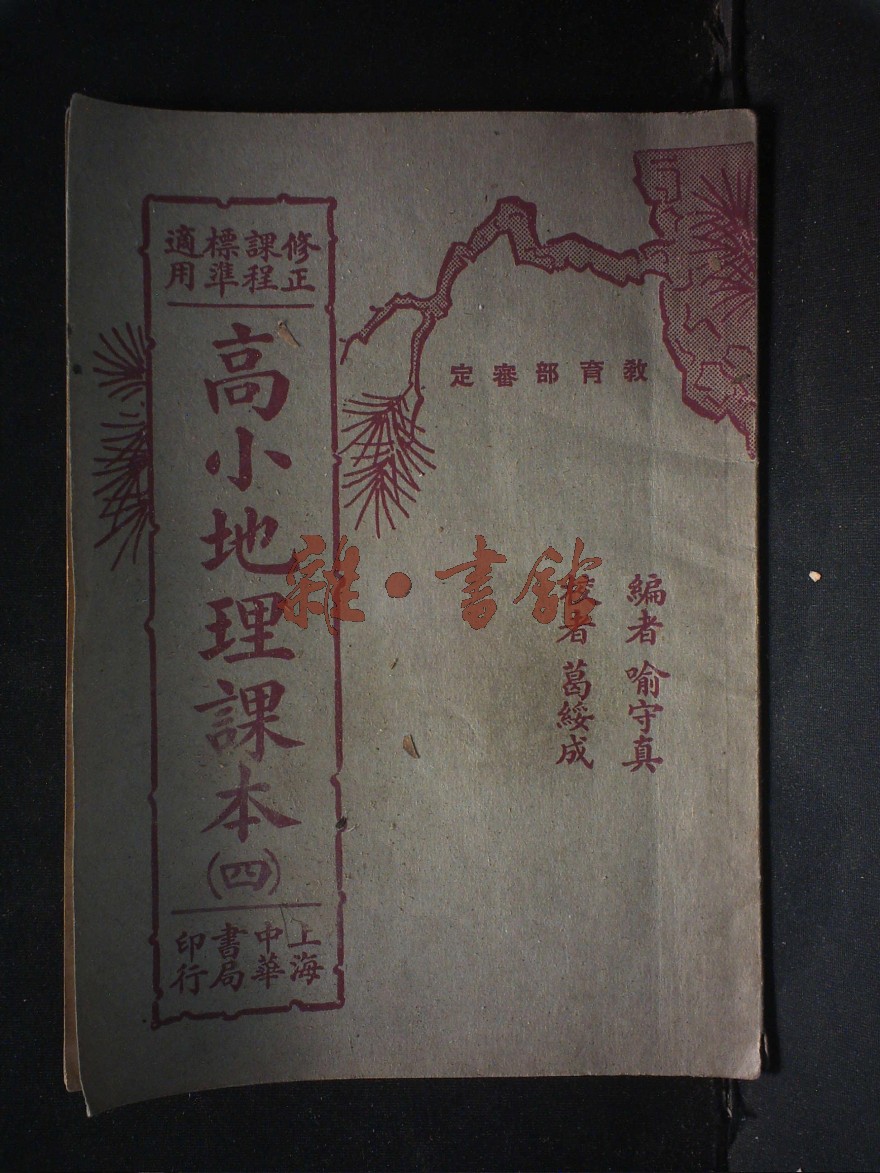 教育部審定
編者 喻守真
校者 葛綏成
修正
課程
標準
適用
高小地理課本(四)
上海
中華
書局
印行
雜·書館